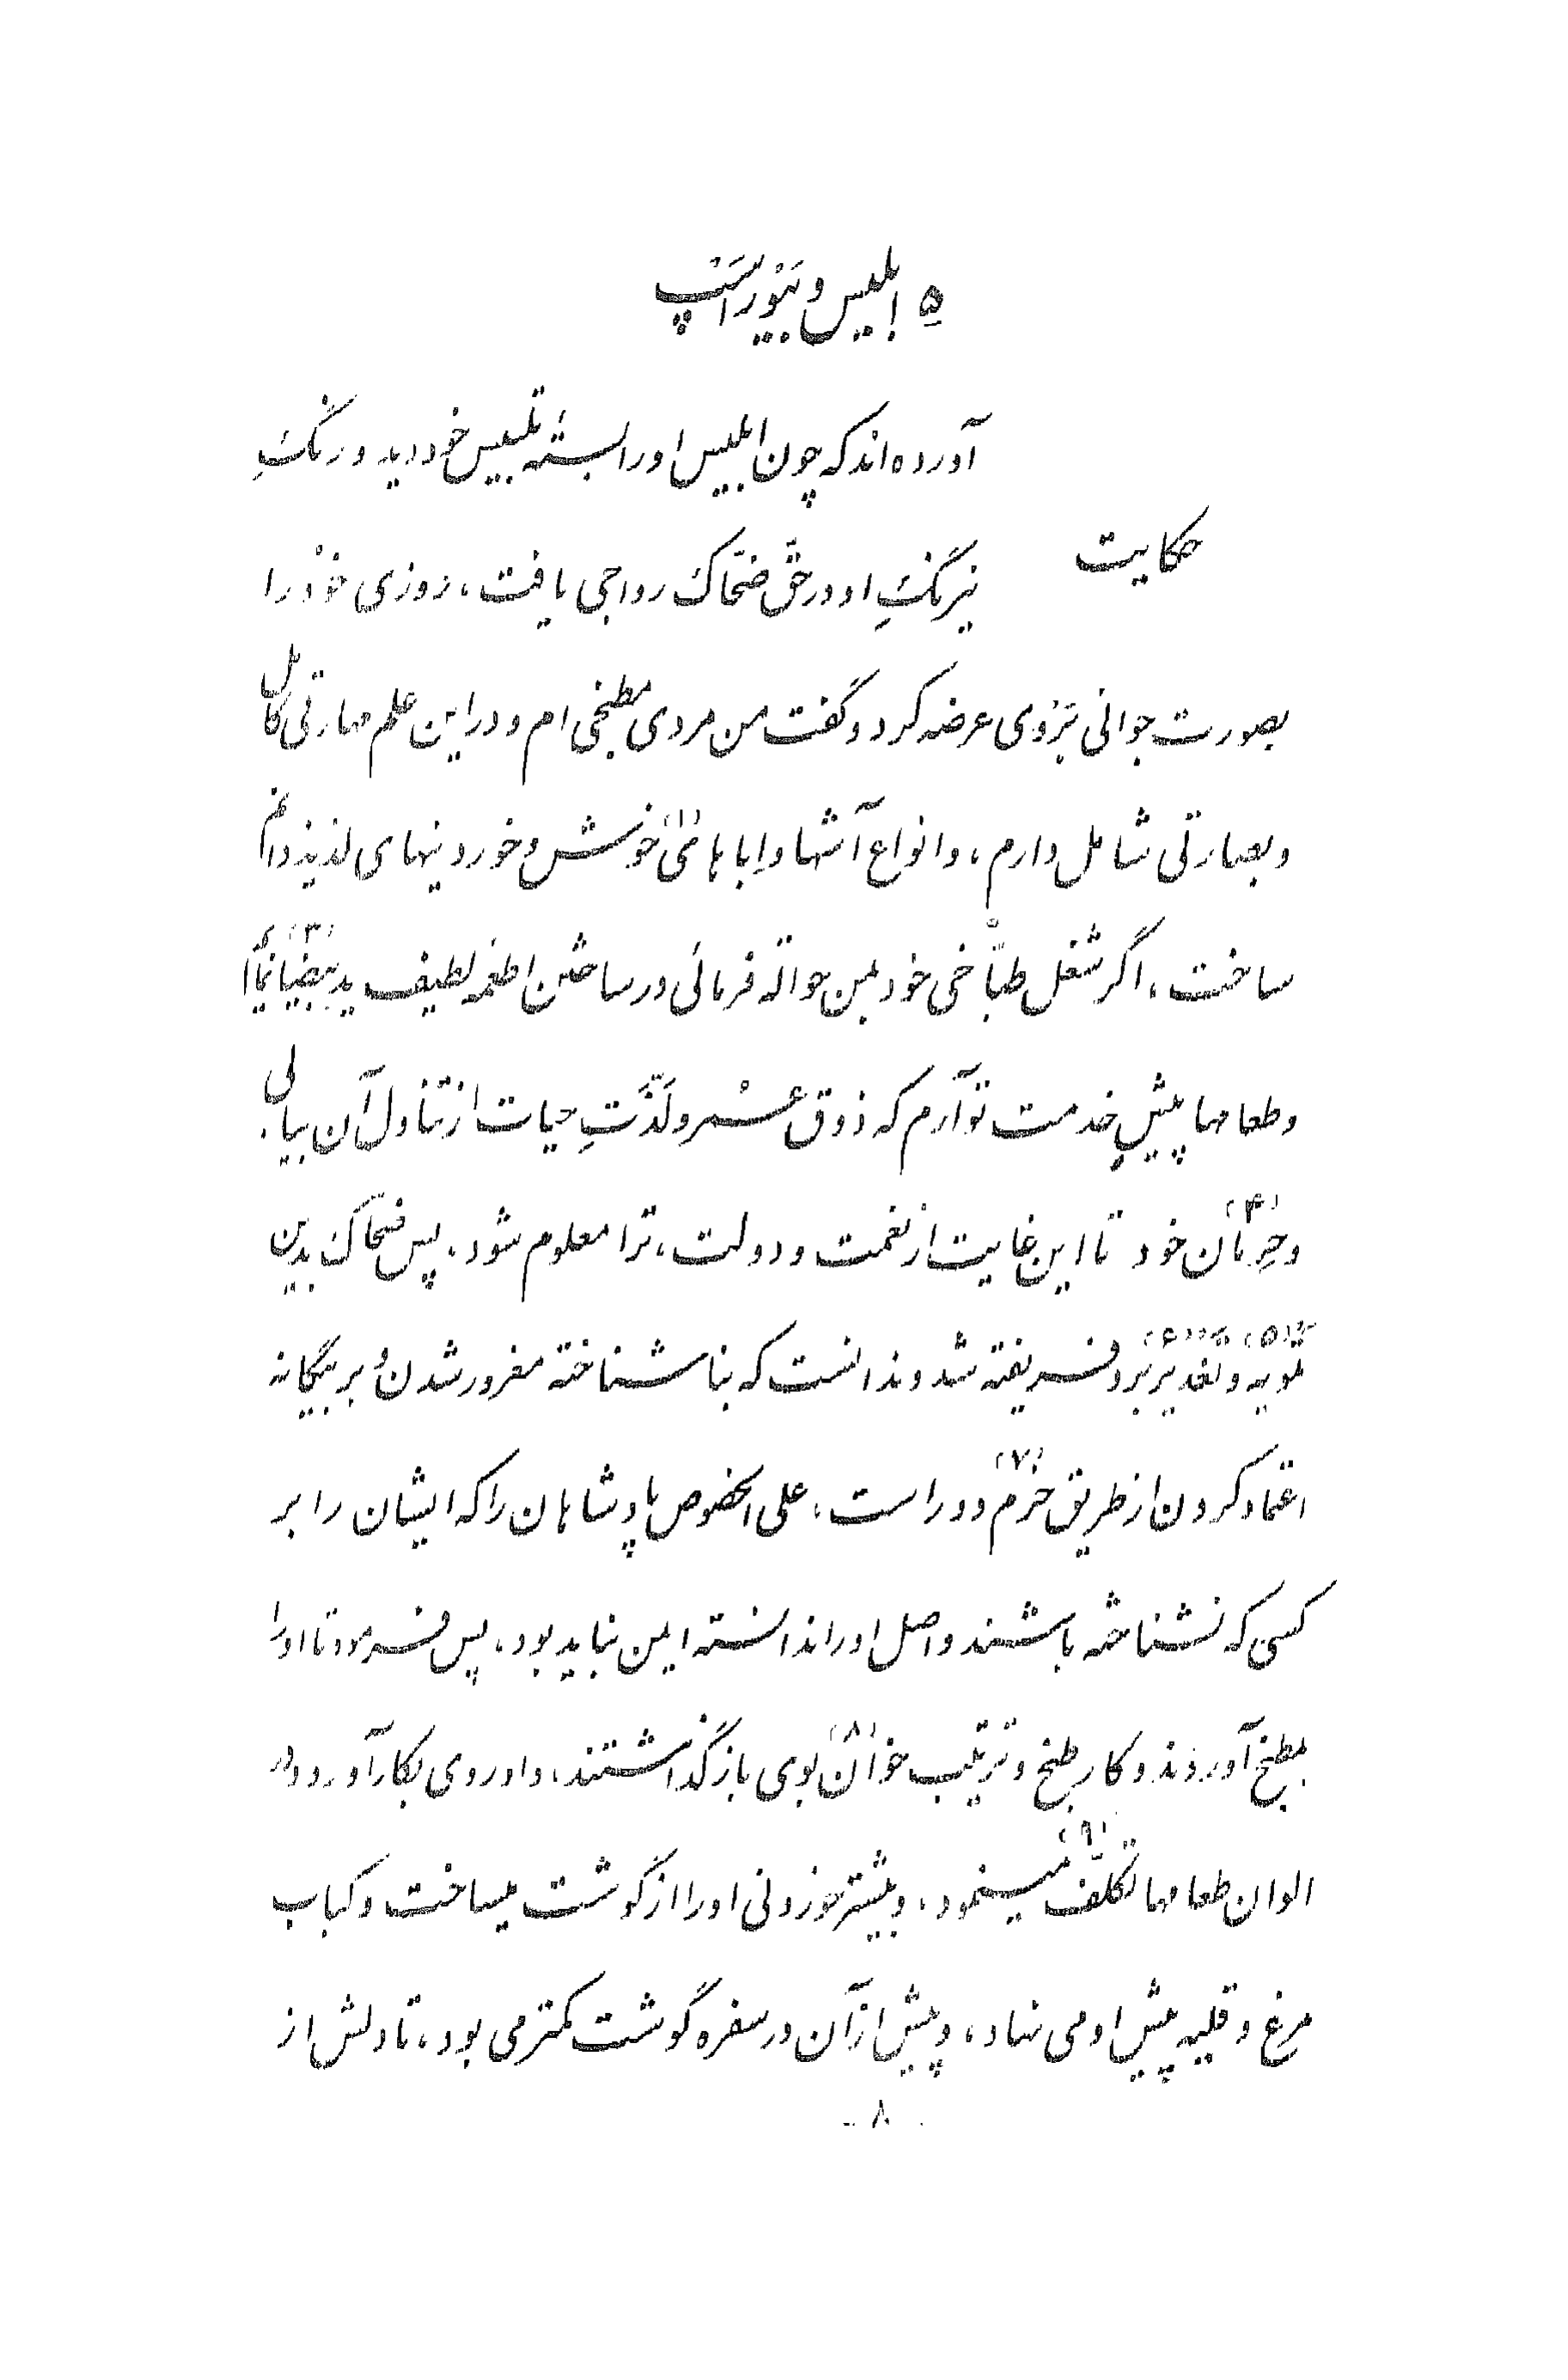 ۵ ابلیس و بَیْوَراَسْپ
آورده‌اند که چون ابلیس او را بستهٔ تلبیس خود دید و رنگِ
حکایت
نیرنگِ او در حقّ ضحّاک رواجی یافت، روزی خوذ را
بصورت جوانی بَرْوی عرضه کرد و گفت من مردی مطبخی ام و در این علم مهارتی کامل
و بصارتی شامل دارم، و انواع آشها و اِباهائی (۱) خوش و خوردنیهای لذیذ دانم
ساخت، اگر شغل طبّاخی خود بمن حواله فرمائی و در ساختن اطعمه لطیف ید بیضا نمایم (۳)
و طعامها پیشِ خدمت تو آرم که ذوق عمر و لَذّتِ حیات از تناول آن بیابی.
و حِرمان (۴) خود تا این غایت از نعمت و دولت، ترا معلوم شود. پس ضحّاک بدین
تمویه (۵) و تغدیر (۶) بَرو فریفته شد و ندانست که بنا شناخته مغرور شدن و بر بیگانه
اعتماد کردن از طریق حَزم (۷) دور است، علی الخصوص پادشاهان را که ایشان را بر
کسی که نشناخته باشند و اصل او را ندانسته ایمن نباید بود، پس فرمود تا او را
بمطبخ آوردند و کار طبخ و ترتیب خوان (۸) بوی باز گذاشتند، و او روی بکار آورد و در
الوان طعامها تکلّف (۹) مینمود، و بیشتر خوردنی او را از گوشت میساخت و کباب
مرغ و قلیه پیش او می نهاد، و پیش از آن در سفره گوشت کمتر می بود، تا دلش از
- ۸ -